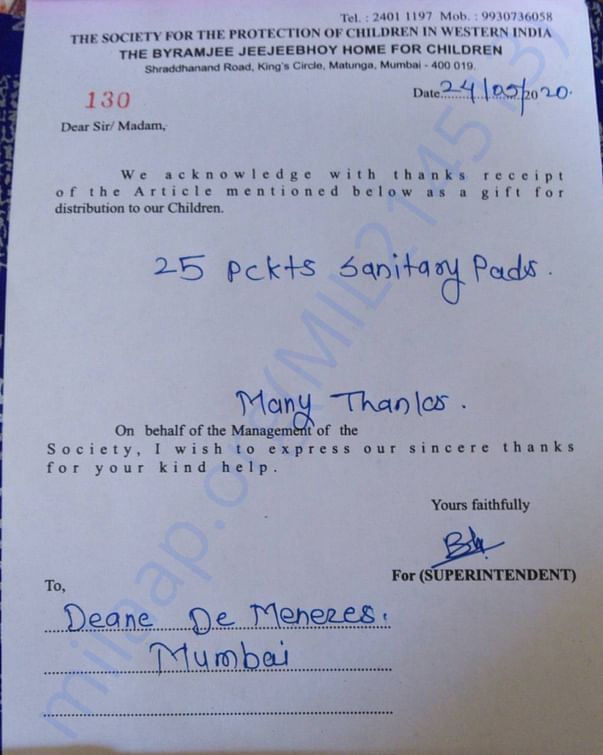 Tel. : 2401 1197 Mob. : 9930736058
THE SOCIETY FOR THE PROTECTION OF CHILDREN IN WESTERN INDIA
THE BYRAMJEE JEEJEEBHOY HOME FOR CHILDREN
Shraddhanand Road, King's Circle, Matunga, Mumbai - 400 019.
130
Date 24/05/2020.
Dear Sir/ Madam,
We acknowledge with thanks receipt
of the Article mentioned below as a gift for
distribution to our Children.
25 Pckts Sanitary Pads.
Many Thanks.
On behalf of the Management of the
Society, I wish to express our sincere thanks
for your kind help.
Yours faithfully
For (SUPERINTENDENT)
To,
Deane De Menezes.
Mumbai